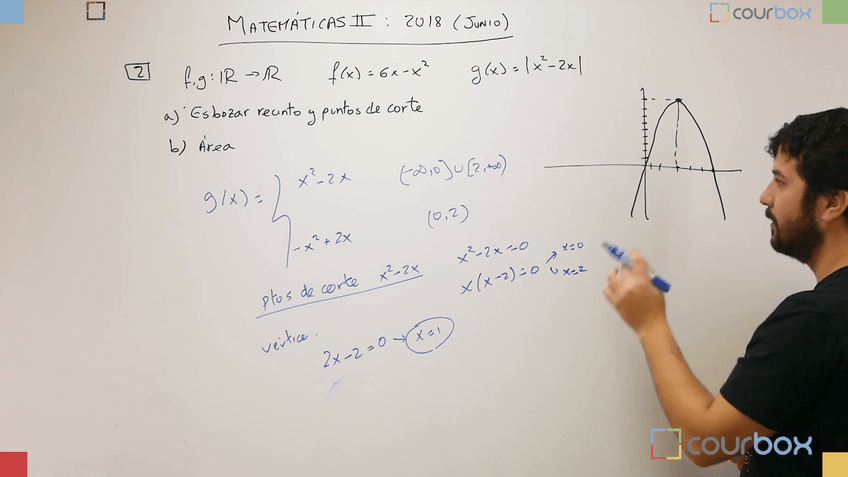 MATEMÁTICAS II : 2018 (JUNIO)
courbox
2 f,g: ℝ → ℝ f(x) = 6x - x² g(x) = |x² - 2x|
a) Esbozar recinto y puntos de corte
b) Área
g(x) = { x² - 2x (-∞, 0] ∪ [2, +∞)
-x² + 2x (0, 2)
ptos de corte x² - 2x x² - 2x = 0
x(x - 2) = 0 x = 0
x = 2
vértice.
2x - 2 = 0 → x = 1
courbox